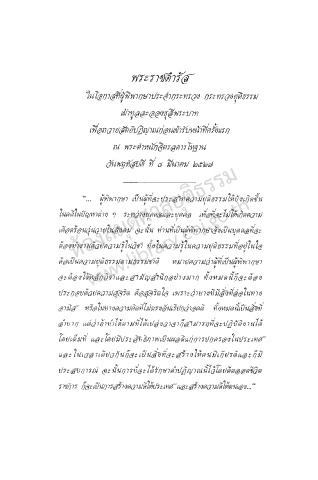 พระราชดำรัส
ในโอกาสที่ผู้พิพากษาประจำกระทรวง กระทรวงยุติธรรม
เฝ้าทูลละอองธุลีพระบาท
เพื่อถวายสัตย์ปฏิญาณก่อนเข้ารับหน้าที่ครั้งแรก
ณ พระตำหนักจิตรลดารโหฐาน
วันพฤหัสบดี ที่ ๘ มีนาคม ๒๕๒๗
"... ผู้พิพากษา เป็นผู้ที่จะประสาทความยุติธรรมให้บังเกิดขึ้น
ในคดีในปัญหาต่าง ๆ ระหว่างบุคคลและบุคคล เพื่อที่จะไม่ให้เกิดความ
เดือดร้อนวุ่นวายในสังคม ฉะนั้น ท่านที่เป็นผู้พิพากษาจึงเป็นบุคคลที่จะ
ต้องมีความรู้ในวิชา ทั้งในความรู้ในความยุติธรรมที่อยู่ในใจ
คือเป็นความยุติธรรมตามธรรมชาติ หมายความว่าผู้ที่เป็นผู้พิพากษา
จะต้องใช้หลักวิชาและสามัญสำนึกอย่างมาก ทั้งหมดนี้ก็จะต้อง
ประกอบด้วยความสุจริต คือสุจริตใจ เพราะว่าบางทีมีสิ่งที่ล่อในทาง
อามิส หรือในทางความคิดที่ไม่ตรงอันเรียกว่าอคติ ทั้งหมดนี้เป็นสิ่งที่
ลำบาก แต่ว่าถ้าทำได้ตามที่ได้เปล่งวาจาก็สามารถที่จะปฏิบัติงานได้
โดยเต็มที่ และโดยมีประสิทธิภาพเป็นผลดีแก่การปกครองในประเทศ
และในเวลาเดียวกันก็จะเป็นสิ่งที่จะสร้างให้ตนมีเกียรติและก็มี
ประสบการณ์ ฉะนั้นการที่จะได้รักษาคำปฏิญาณนี้ไว้โดยติดตลอดชีวิต
ราชการ ก็จะเป็นการสร้างความดีให้ประเทศ และสร้างความดีให้ตนเอง..."